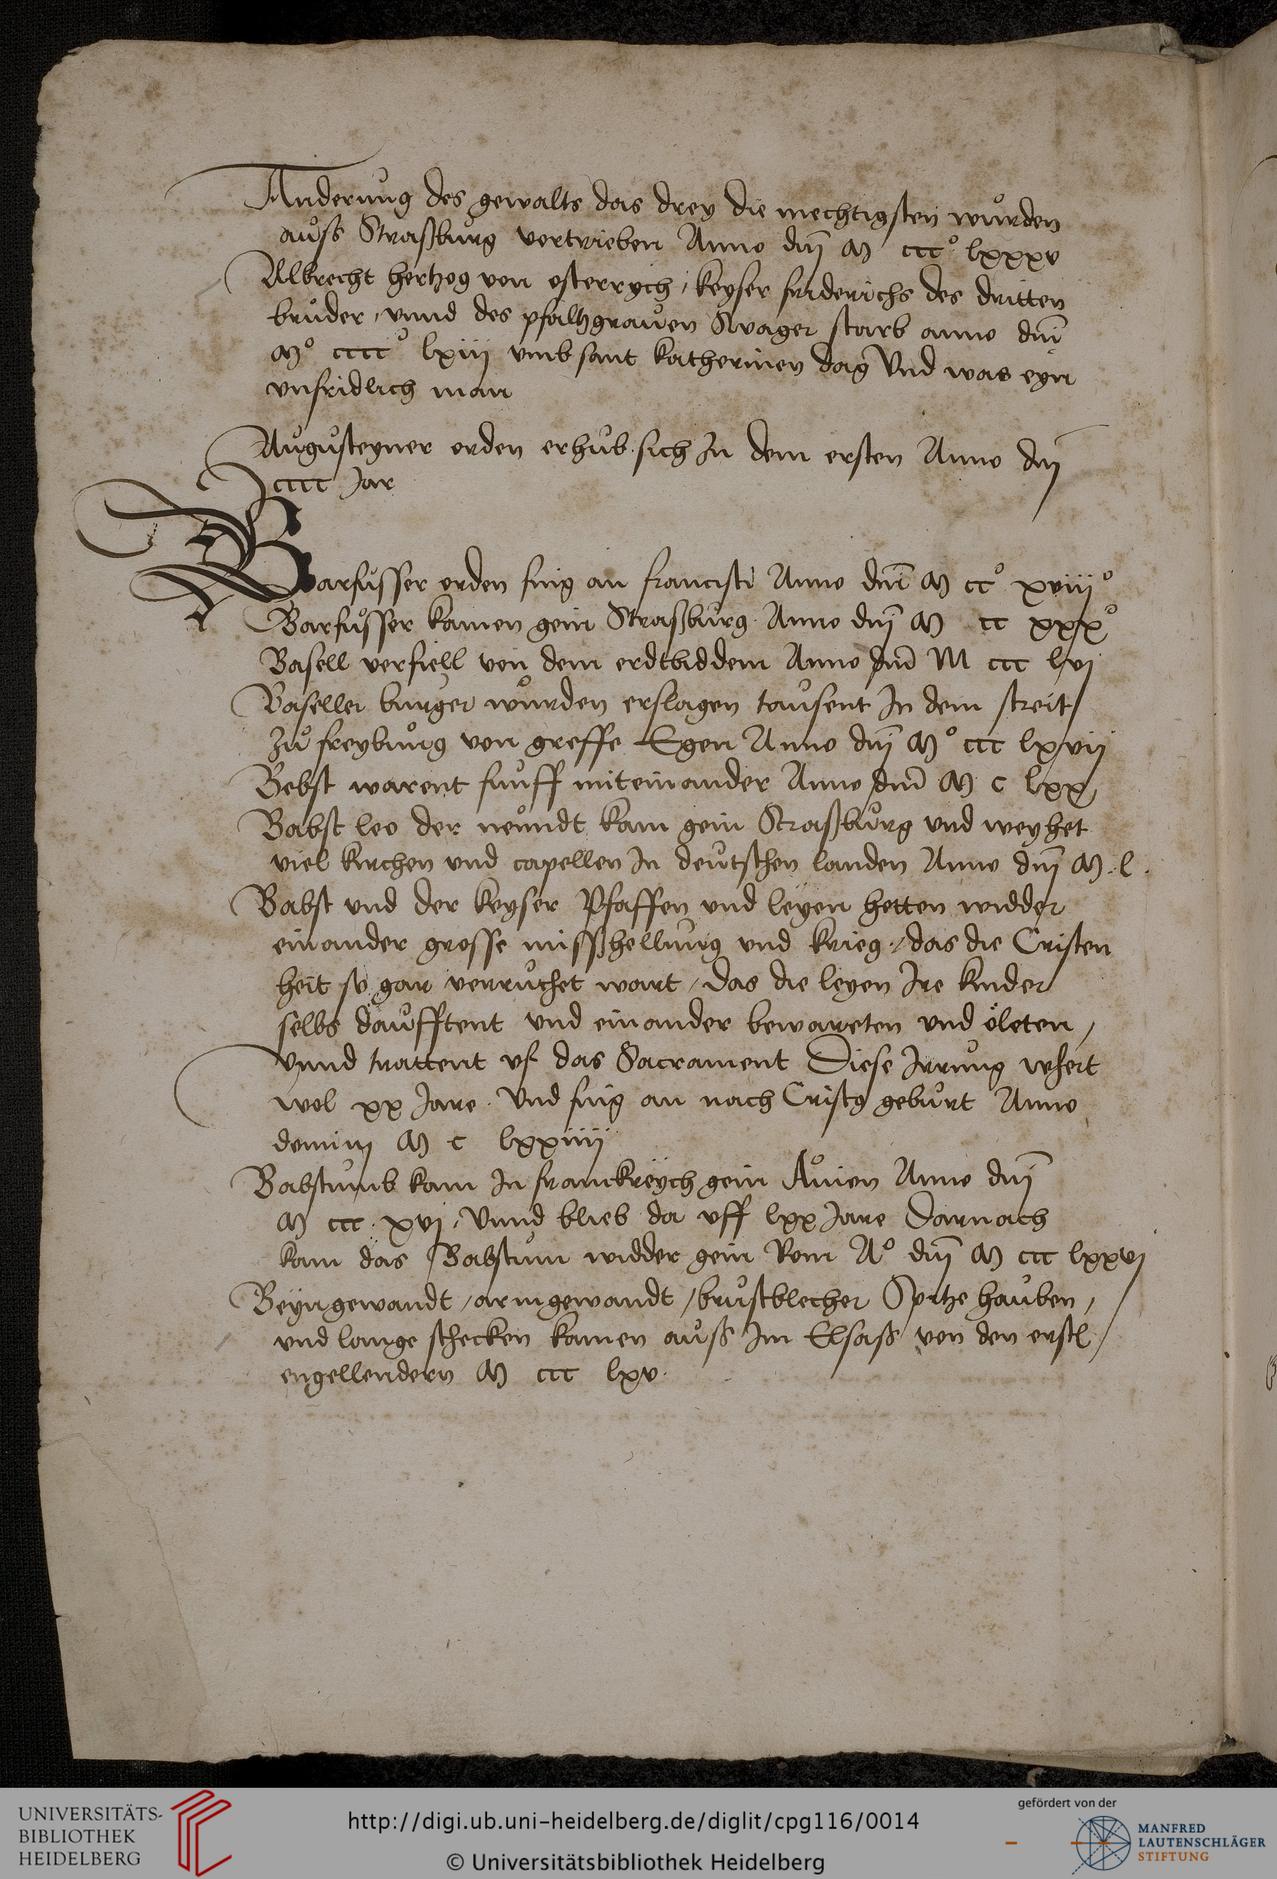 Anderung des gewalts das drey die mechtigsten wurden
auss Straßburg vertrieben Anno dm̄ M ccc° lxxxv
Albrecht hertzog von osterrych / keyser friderichs des dritten
bruder / vnnd des pfaltzgrauen Swager starb anno dm̄
M° cccc° lxiij vmb sant katherinen dag Vnd was eyn
vnfridlich man
Augusteyner orden erhub sich In dem ersten Anno dm̄
cccc Jar
Barfusser orden fing an francisci Anno dm̄ M cc° xviij°
Barfusser kamen gein Straßburg Anno dm̄ M cc xxx°
Basell verfiell von dem erdtbiddem Anno dm̄ M ccc lvj
Baseller burger wurden erslagen tausent In dem streit /
zu freyburg von greffe Egen Anno dm̄ M° ccc lxvij
Bebst warent funff miteinander Anno dm̄ M c lxx
Babst leo der neundt kam gein Straßburg vnd weyhet
viel kirchen vnd capellen In deutschen landen Anno dm̄ M · l ·
Babst vnd der keyser Pfaffen vnd leyen hetten widder
einander grosse mißhellung vnd krieg / das die Cristen
heit so gar verruchet wart / das die leyen Ire kinder
selbs däufftent vnd einander bewareten vnd öleten /
Vnnd trattent vf das Sacrament Diese Irrung wert
wol xx Jare Vnd fing an nach Cristi geburt Anno
domini M c lxxiiij
Babstumb kam In franckreych gein Auion Anno dm̄
M ccc xvj / Vnnd blieb da vff lxx Jare Darnach
kam das Babstum widder gein Rom A° dm̄ M ccc lxxvj
Beyngewandt / armgewandt / brustblecher Spitze hauben /
vnd lange schecken kamen auss Im Elsass von den erst /
engellendern M ccc lxv ·
UNIVERSITÄTS-
BIBLIOTHEK
HEIDELBERG
http://digi.ub.uni-heidelberg.de/diglit/cpg116/0014
© Universitätsbibliothek Heidelberg
gefördert von der
MANFRED
LAUTENSCHLÄGER
STIFTUNG